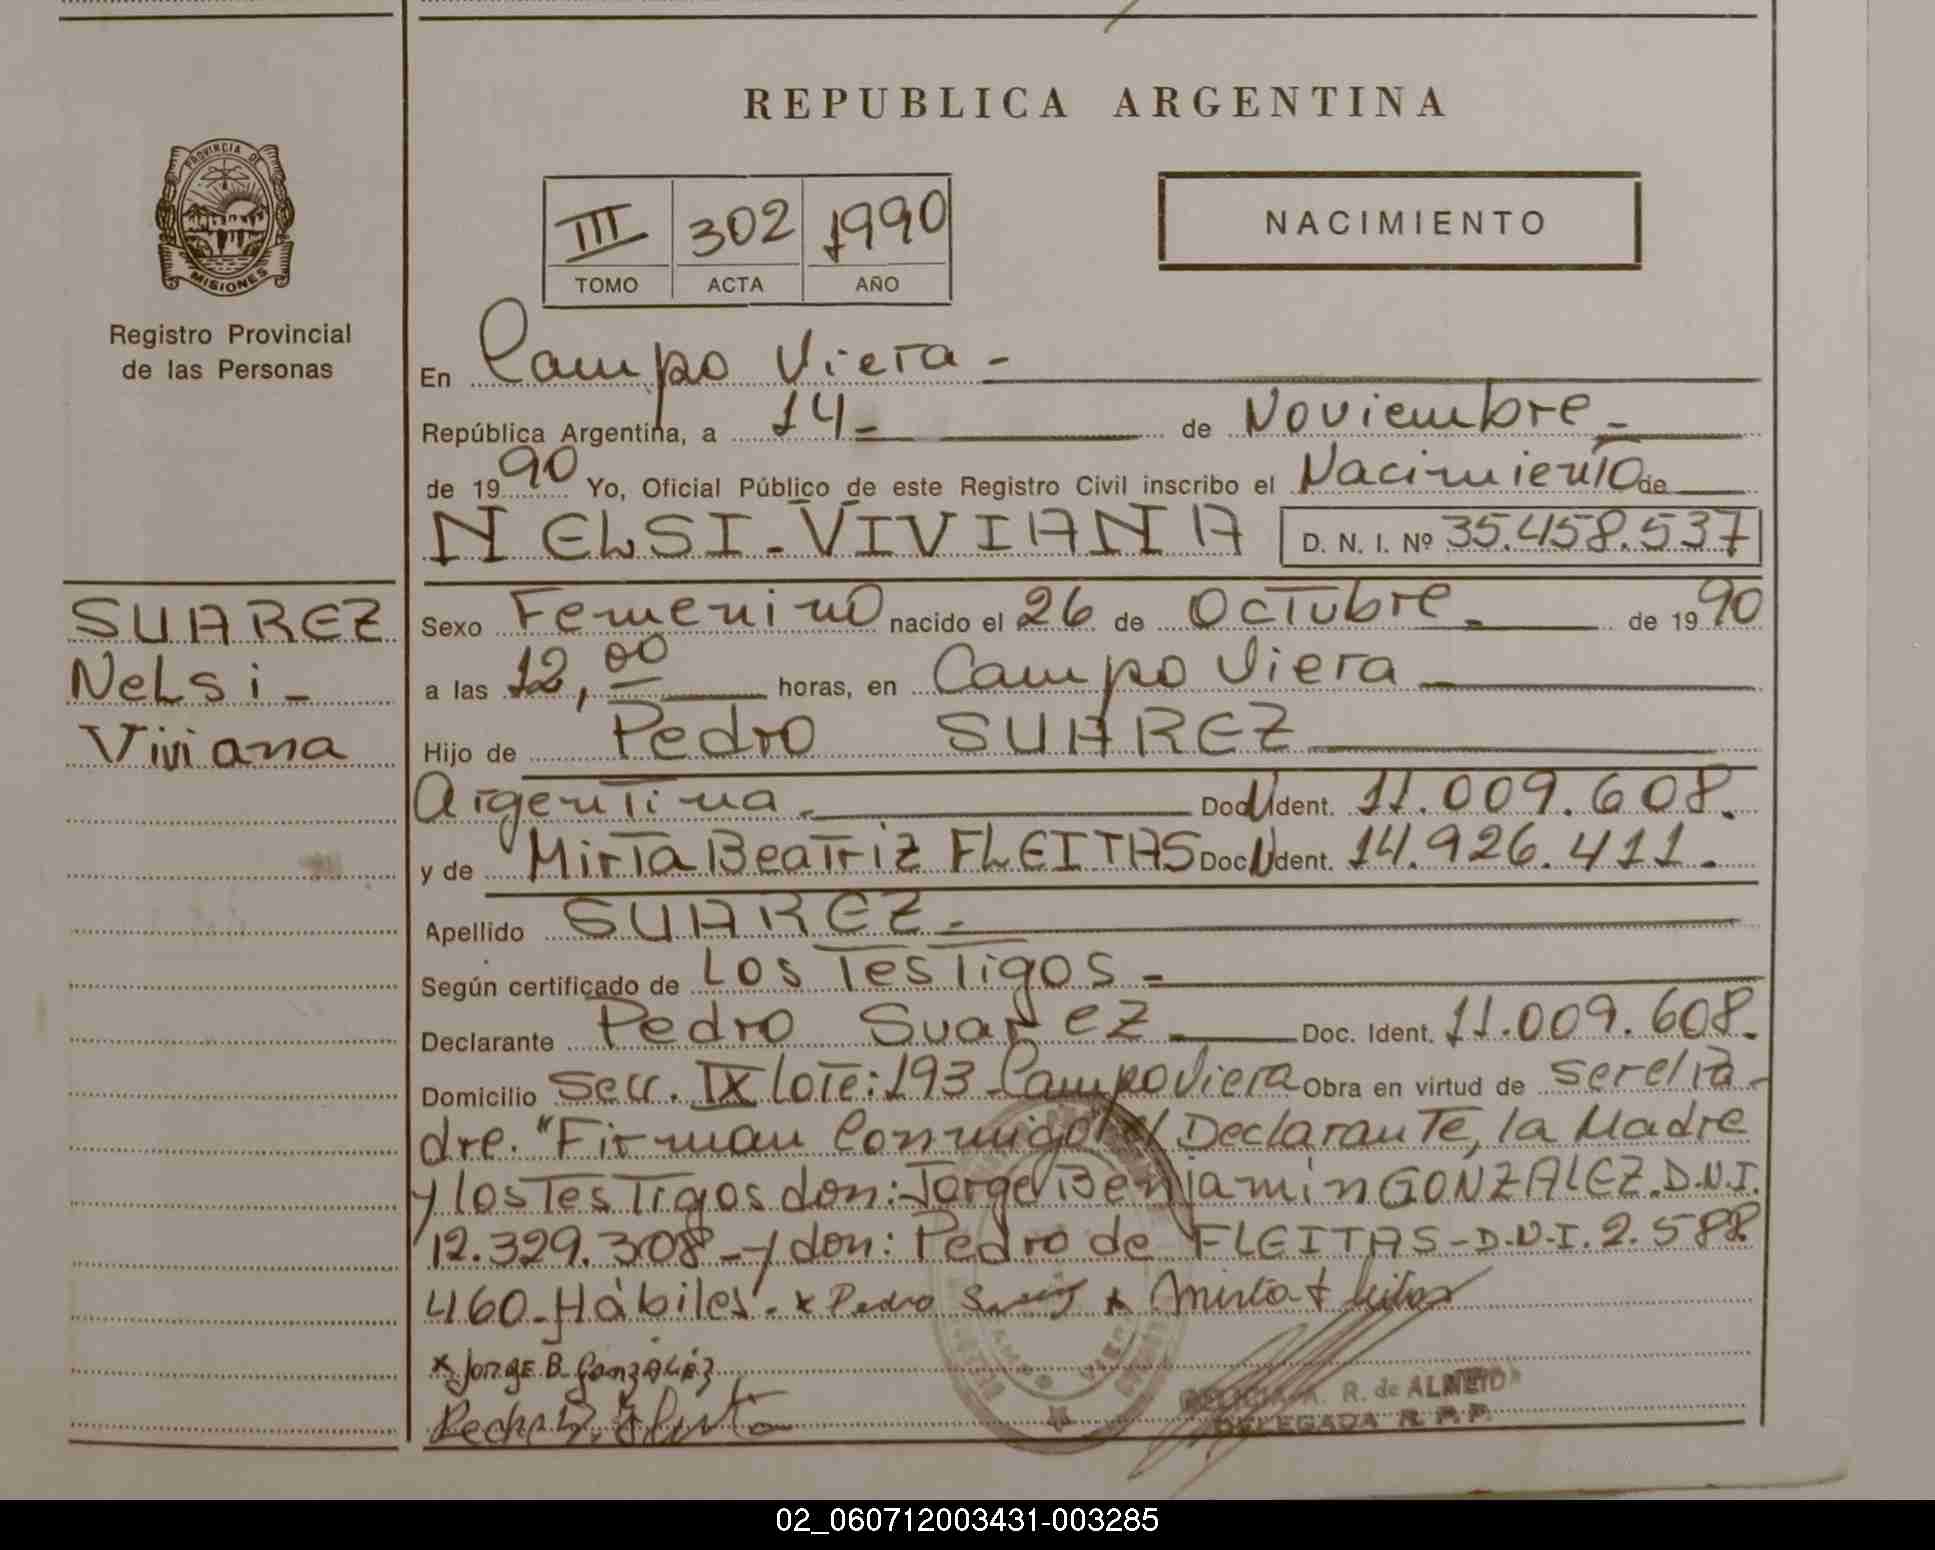 REPUBLICA ARGENTINA
PROVINCIA DE
MISIONES
Registro Provincial
de las Personas
III 302 1990
TOMO ACTA AÑO
NACIMIENTO
En Campo Viera -
República Argentina, a 14 - de Noviembre -
de 1990 Yo, Oficial Público de este Registro Civil inscribo el Nacimiento de
NELSI - VIVIANA D. N. I. Nº 35.458.537
SUAREZ
Nelsi -
Viviana
Sexo Femenino nacido el 26 de Octubre - de 1990
a las 12,00 horas, en Campo Viera
Hijo de Pedro SUAREZ
Argentina. Doc N Ident. 11.009.608.
y de Mirta Beatriz FLEITAS Doc N Ident. 14.926.411.
Apellido SUAREZ -
Según certificado de Los Testigos -
Declarante Pedro Suarez Doc. Ident. 11.009.608.
Domicilio Secc. IX Lote: 193 - Campo Viera Obra en virtud de ser el pa-
dre. "Firman Conmigo el Declarante, la Madre
y los Testigos don: Jorge Benjamin GONZALEZ. D.N.I.
12.329.308 - y don: Pedro de FLEITAS - D.N.I. 2.588
460 - Hábiles". x Pedro x Mirta Fleitas
x Jorge B. Gonzalez
R. de ALMEID
DELEGADA R. P. P.
02_060712003431-003285